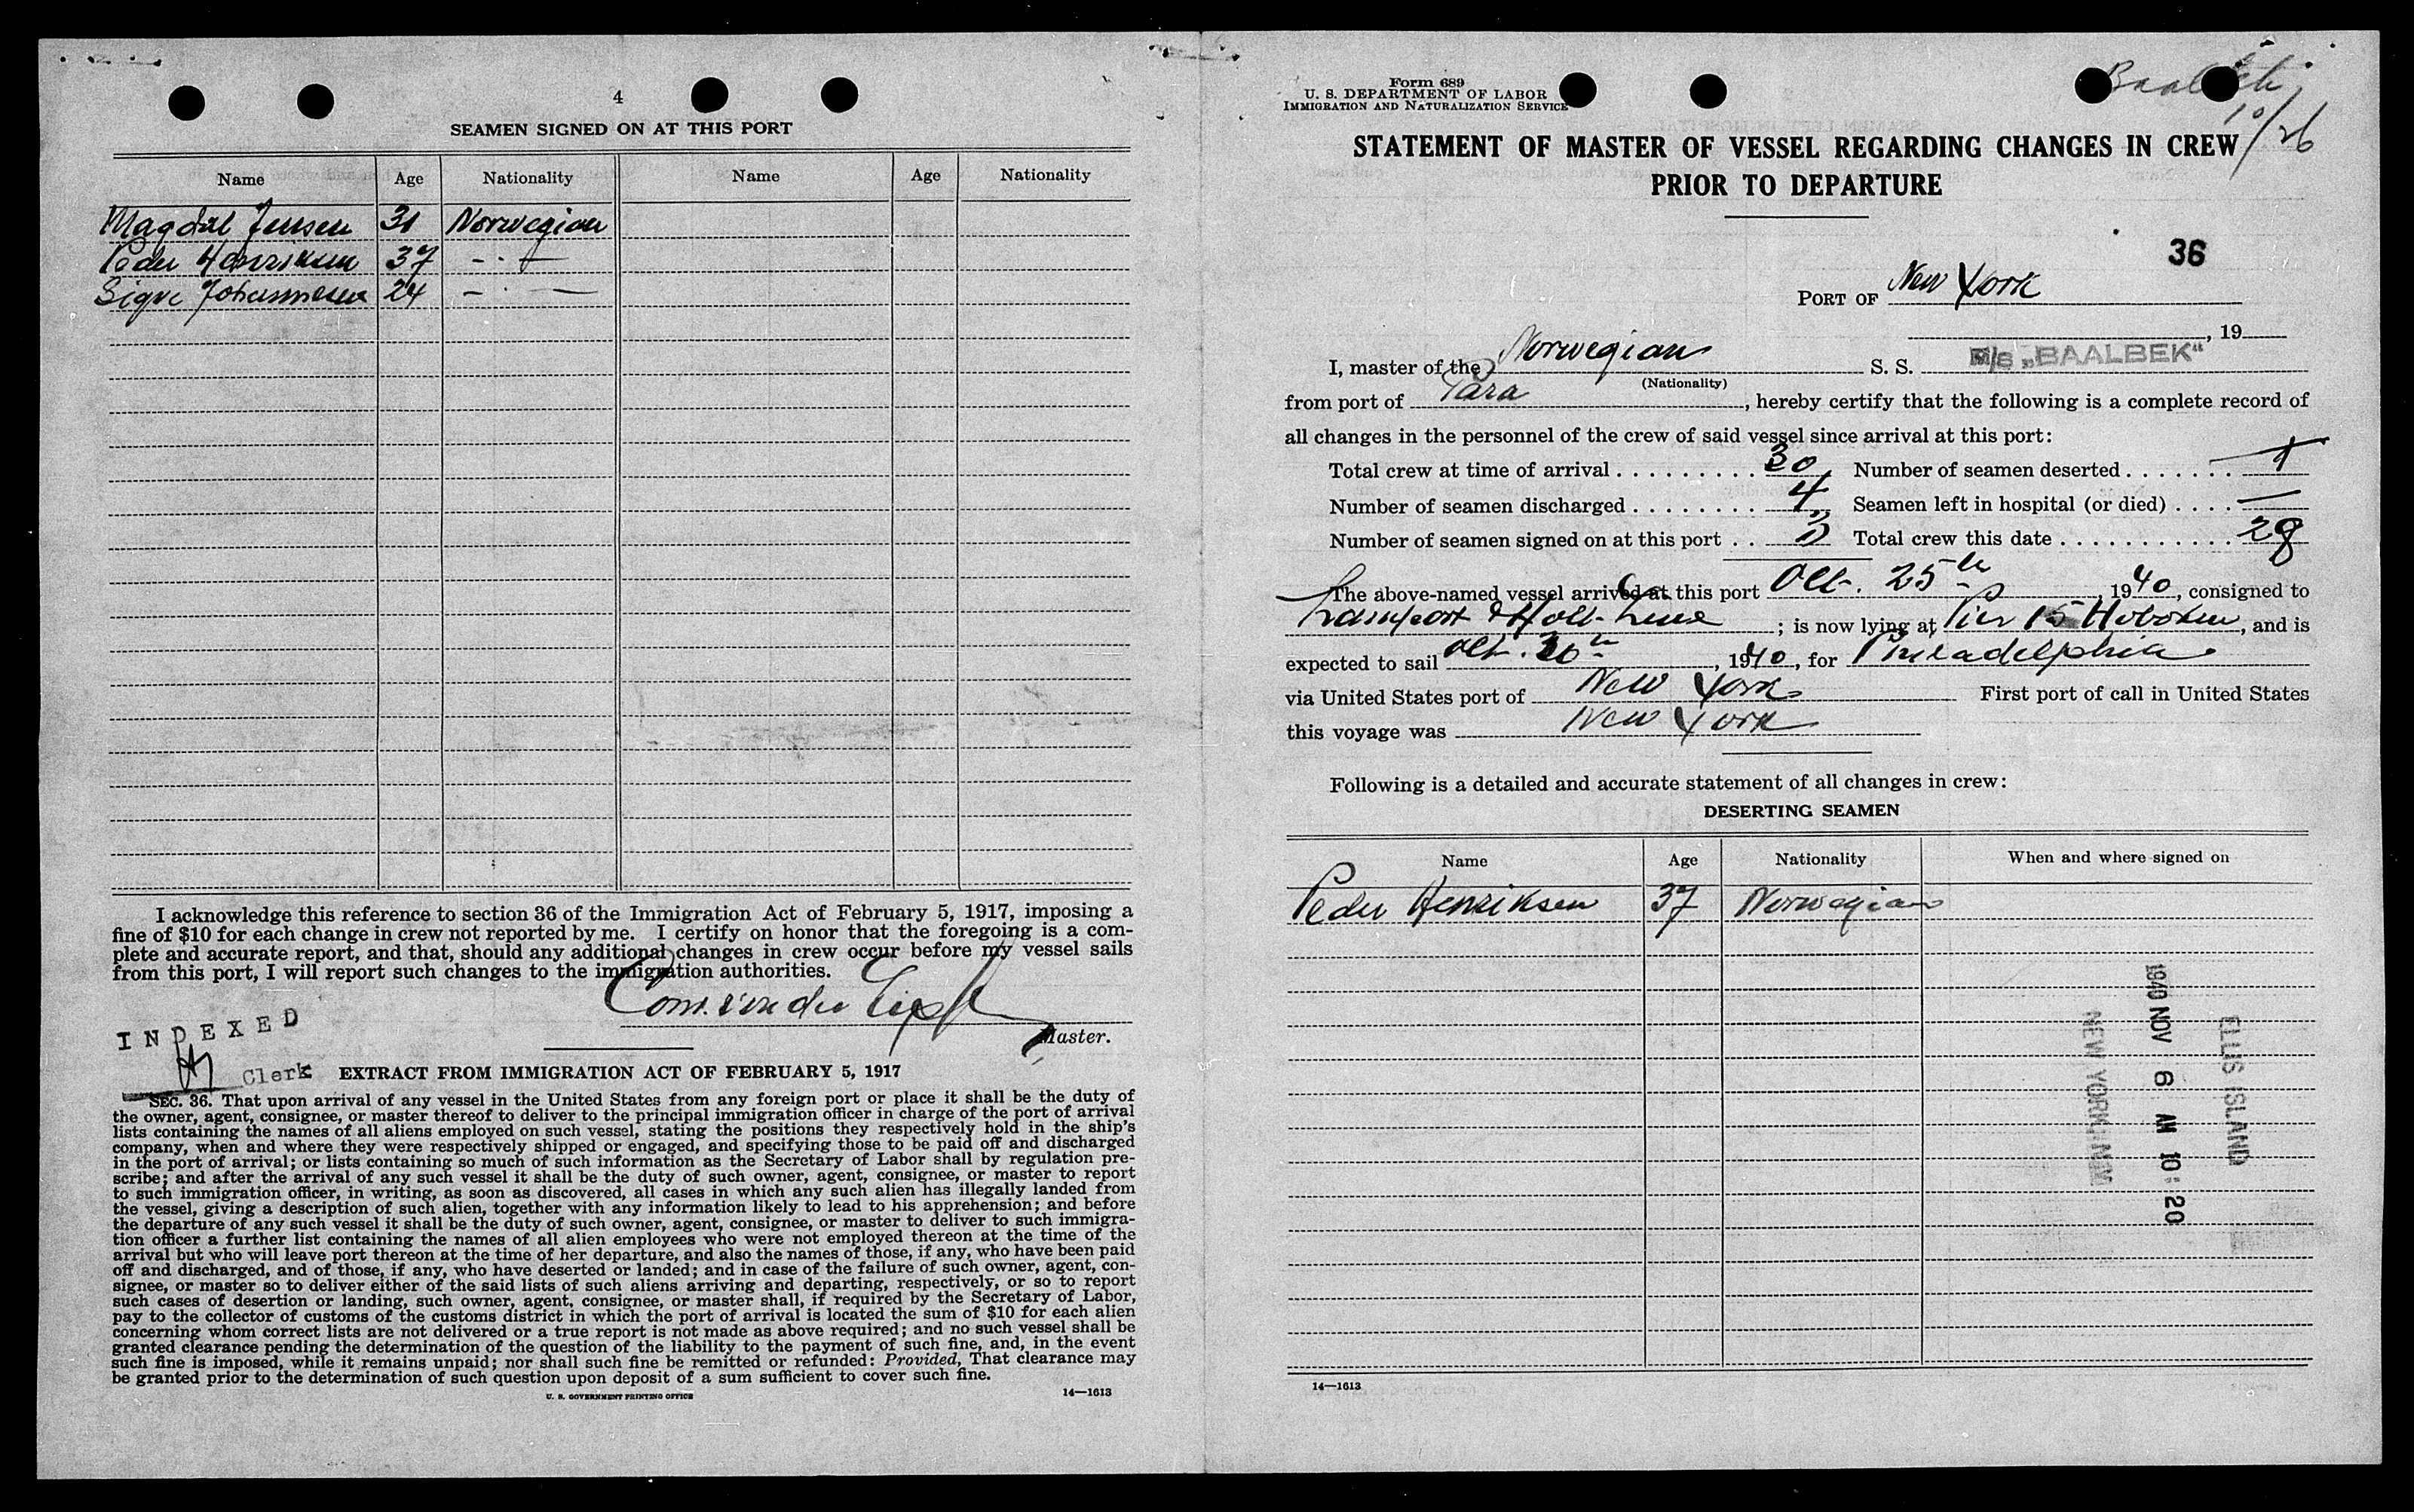 4
SEAMEN SIGNED ON AT THIS PORT
Name Age Nationality Name Age Nationality
Magdal Jensen 31 Norwegian
Peder Henriksen 37 - " -
Sigve Johannesen 24 - " -
I acknowledge this reference to section 36 of the Immigration Act of February 5, 1917, imposing a
fine of $10 for each change in crew not reported by me. I certify on honor that the foregoing is a com-
plete and accurate report, and that, should any additional changes in crew occur before my vessel sails
from this port, I will report such changes to the immigration authorities.
Master.
INDEXED
Clerk
EXTRACT FROM IMMIGRATION ACT OF FEBRUARY 5, 1917
SEC. 36. That upon arrival of any vessel in the United States from any foreign port or place it shall be the duty of
the owner, agent, consignee, or master thereof to deliver to the principal immigration officer in charge of the port of arrival
lists containing the names of all aliens employed on such vessel, stating the positions they respectively hold in the ship's
company, when and where they were respectively shipped or engaged, and specifying those to be paid off and discharged
in the port of arrival; or lists containing so much of such information as the Secretary of Labor shall by regulation pre-
scribe; and after the arrival of any such vessel it shall be the duty of such owner, agent, consignee, or master to report
to such immigration officer, in writing, as soon as discovered, all cases in which any such alien has illegally landed from
the vessel, giving a description of such alien, together with any information likely to lead to his apprehension; and before
the departure of any such vessel it shall be the duty of such owner, agent, consignee, or master to deliver to such immigra-
tion officer a further list containing the names of all alien employees who were not employed thereon at the time of the
arrival but who will leave port thereon at the time of her departure, and also the names of those, if any, who have been paid
off and discharged, and of those, if any, who have deserted or landed; and in case of the failure of such owner, agent, con-
signee, or master so to deliver either of the said lists of such aliens arriving and departing, respectively, or so to report
such cases of desertion or landing, such owner, agent, consignee, or master shall, if required by the Secretary of Labor,
pay to the collector of customs of the customs district in which the port of arrival is located the sum of $10 for each alien
concerning whom correct lists are not delivered or a true report is not made as above required; and no such vessel shall be
granted clearance pending the determination of the question of the liability to the payment of such fine, and, in the event
such fine is imposed, while it remains unpaid; nor shall such fine be remitted or refunded: Provided, That clearance may
be granted prior to the determination of such question upon deposit of a sum sufficient to cover such fine.
U. S. GOVERNMENT PRINTING OFFICE 14—1613
Form 689
U. S. DEPARTMENT OF LABOR
IMMIGRATION AND NATURALIZATION SERVICE
10/26
STATEMENT OF MASTER OF VESSEL REGARDING CHANGES IN CREW
PRIOR TO DEPARTURE
36
PORT OF New York
, 19
I, master of the Norwegian S. S. M/S „BAALBEK"
(Nationality)
from port of Para, hereby certify that the following is a complete record of
all changes in the personnel of the crew of said vessel since arrival at this port:
Total crew at time of arrival 30 Number of seamen deserted 1
Number of seamen discharged 4 Seamen left in hospital (or died) —
Number of seamen signed on at this port 3 Total crew this date 28
The above-named vessel arrived at this port Oct. 25th, 1940, consigned to
Lamport & Holt Line; is now lying at Pier 15 Hoboken, and is
expected to sail Oct. 30th, 1940, for Philadelphia
via United States port of New York First port of call in United States
this voyage was New York
Following is a detailed and accurate statement of all changes in crew:
DESERTING SEAMEN
Name Age Nationality When and where signed on
Peder Henriksen 37 Norwegian
1940 NOV 6 AM 10:20
ELLIS ISLAND
14—1613